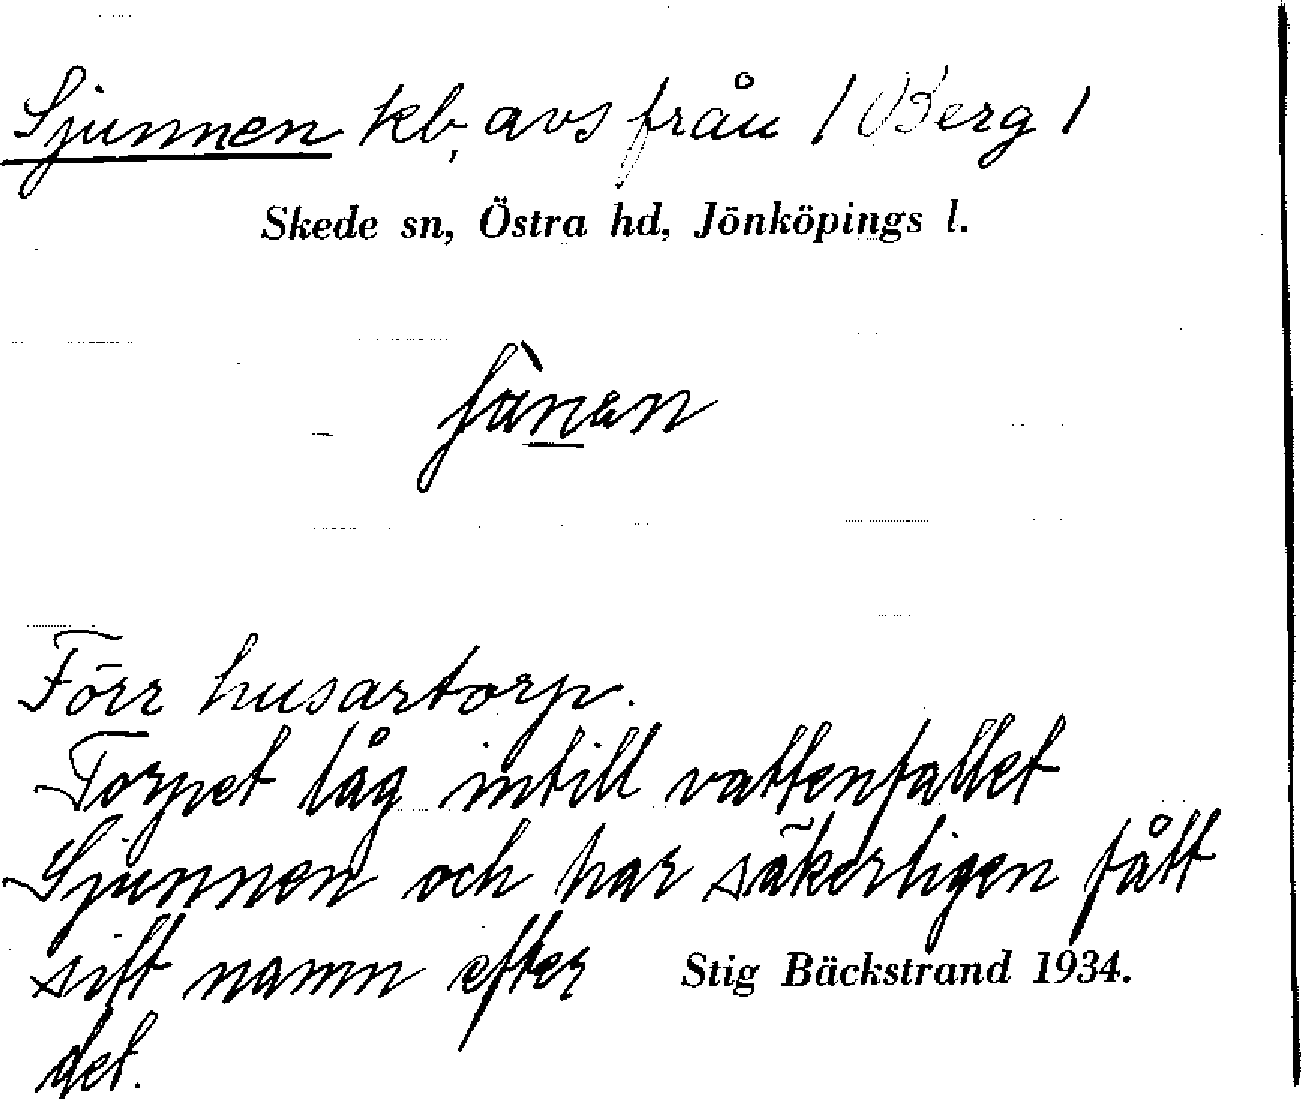 Sjunnen kb, avs från / Berg /
Skede sn, Östra hd, Jönköpings l.
Förr husartorp.
Torpet låg intill vattenfallet
Sjunnen och har säkerligen fått
sitt namn efter Stig Bäckstrand 1934.
det.